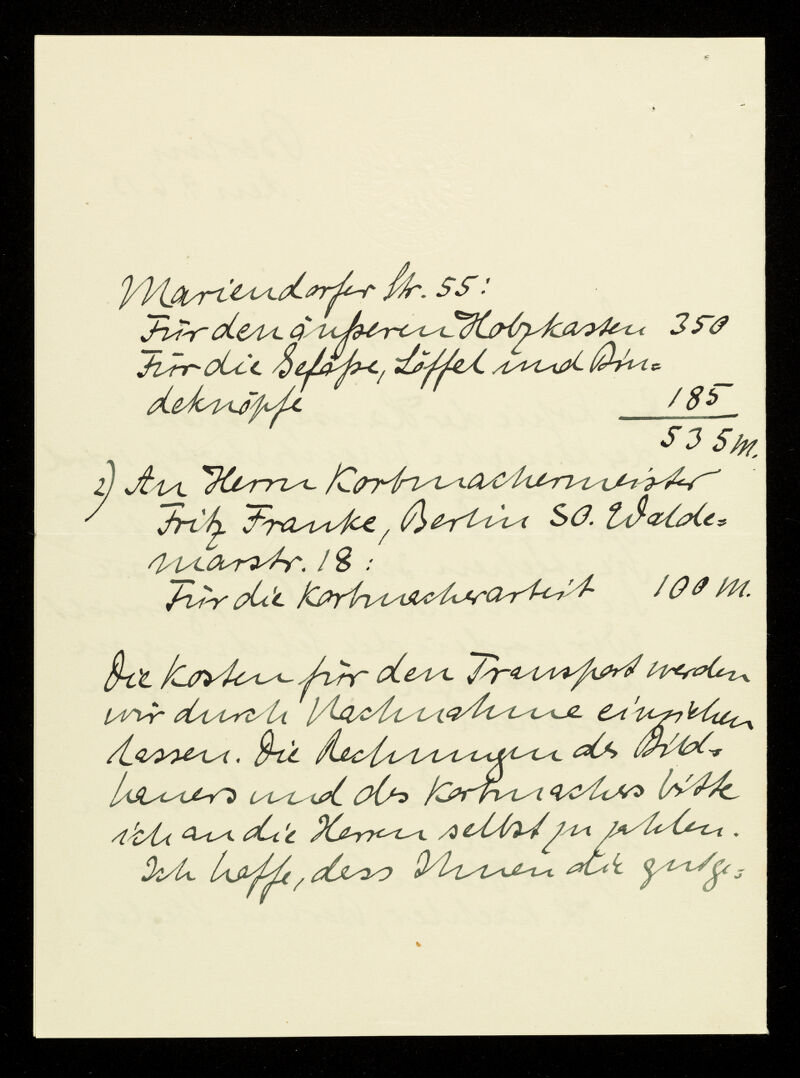 Mariendorfer Str. 55:
Für den äußeren Holzkasten 350
Für die Gefäße, Löffel und Bin=
deknöpfe 185
535 M.
2) An Herrn Korbmachermeister
Fritz Franke, Berlin SO. Walde=
marstr. 18:
Für die Korbmacherarbeit 100 M.
Die Kosten für den Transport werden
wir durch Nachnahme einziehen
lassen. Die Rechnungen des Bild=
hauers und des Korbmachers bitte
ich an die Herren selbst zu zahlen.
Ich hoffe, dass Ihnen die gutge=